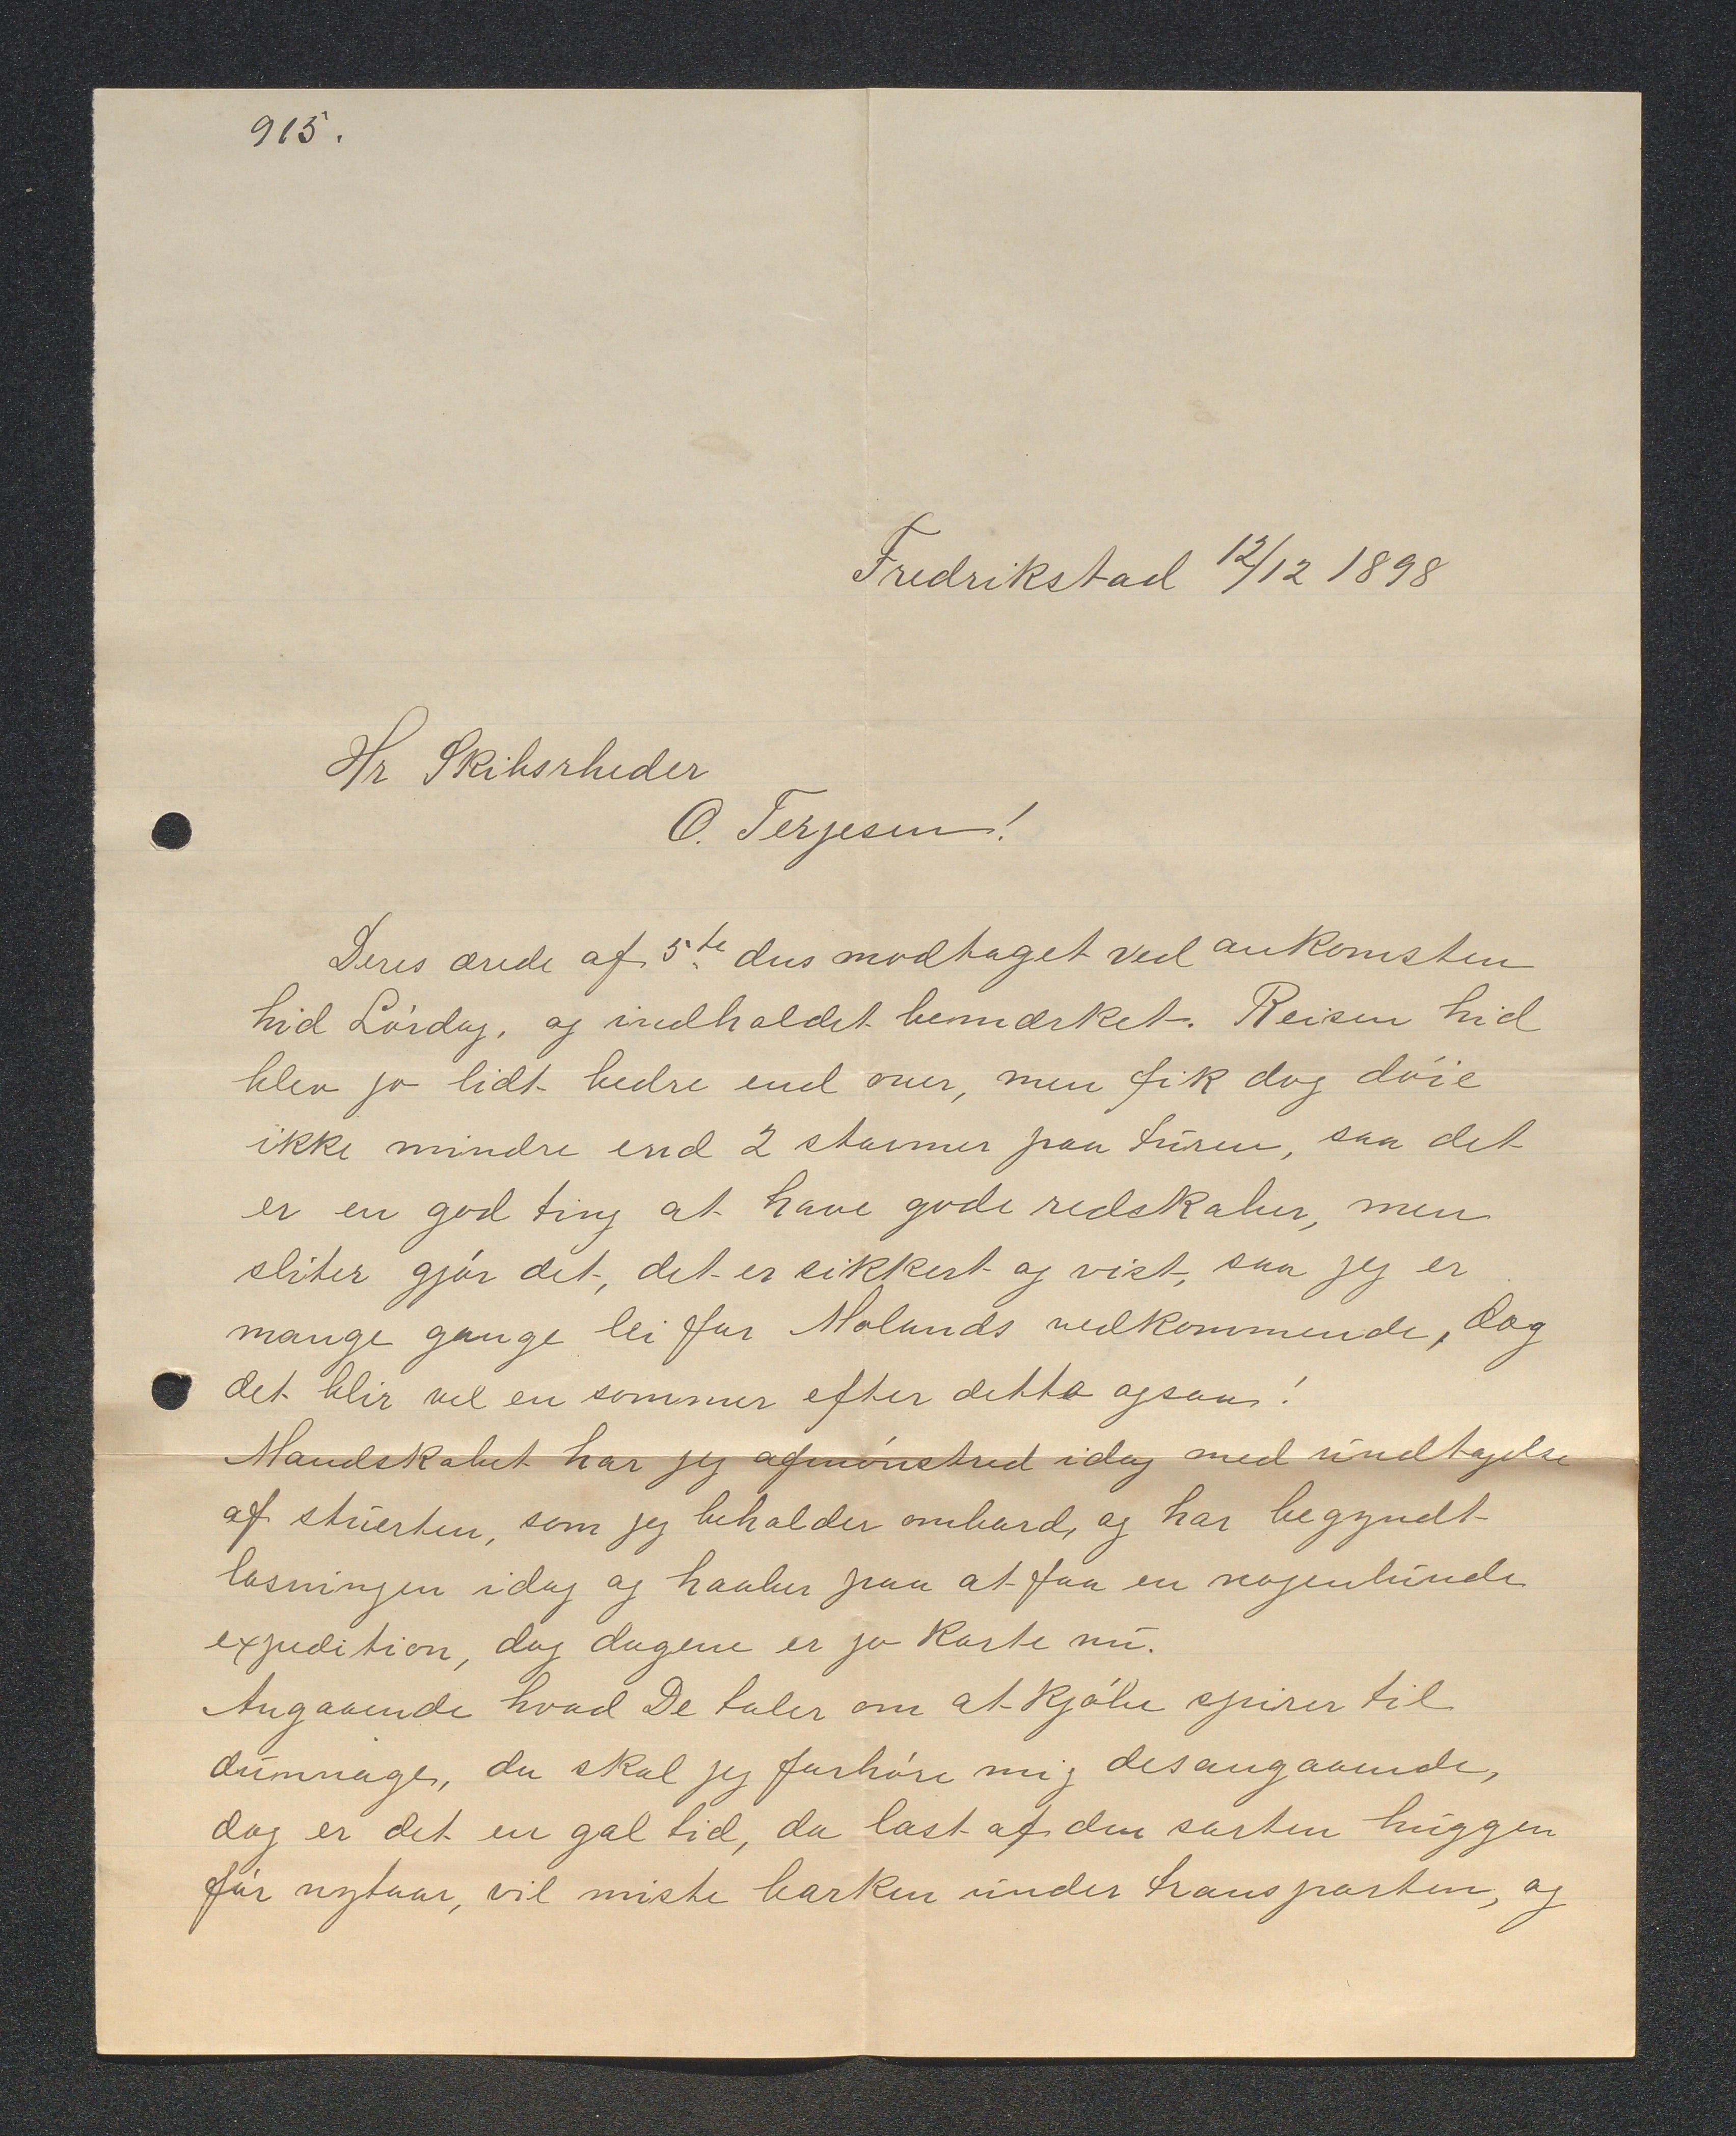 915.
Fredrikstad 12/12 1898
Hr Skibsrheder
O. Terjesen!
Deres ærede af 5te dns modtaget ved ankomsten
hid Lørdag, og indholdet bemærket. Reisen hid
blev jo lidt bedre end over, men fik dog døie
ikke mindre end 2 stormer paa turen, saa det
er en god ting at have gode redskaber, men
sliter gjør det, det er sikkert og vist, saa jeg er
mange gange lei for Molands vedkommende, dog
det blir vel en sommer efter dette ogsaa!
Mandskabet har jeg afmønstred idag med undtagelse
af stuerten, som jeg beholder ombord, og har begyndt
losningen idag og haaber paa at faa en nogenlunde
expedition, dog dagene er jo korte nu.
Angaaende hvad De taler om at kjøbe spirer til
dunnage, da skal jeg forhøre mig desangaaende,
dog er det en gal tid, da last af den sorten huggen
før nytaar, vil miste barken under transporten, og